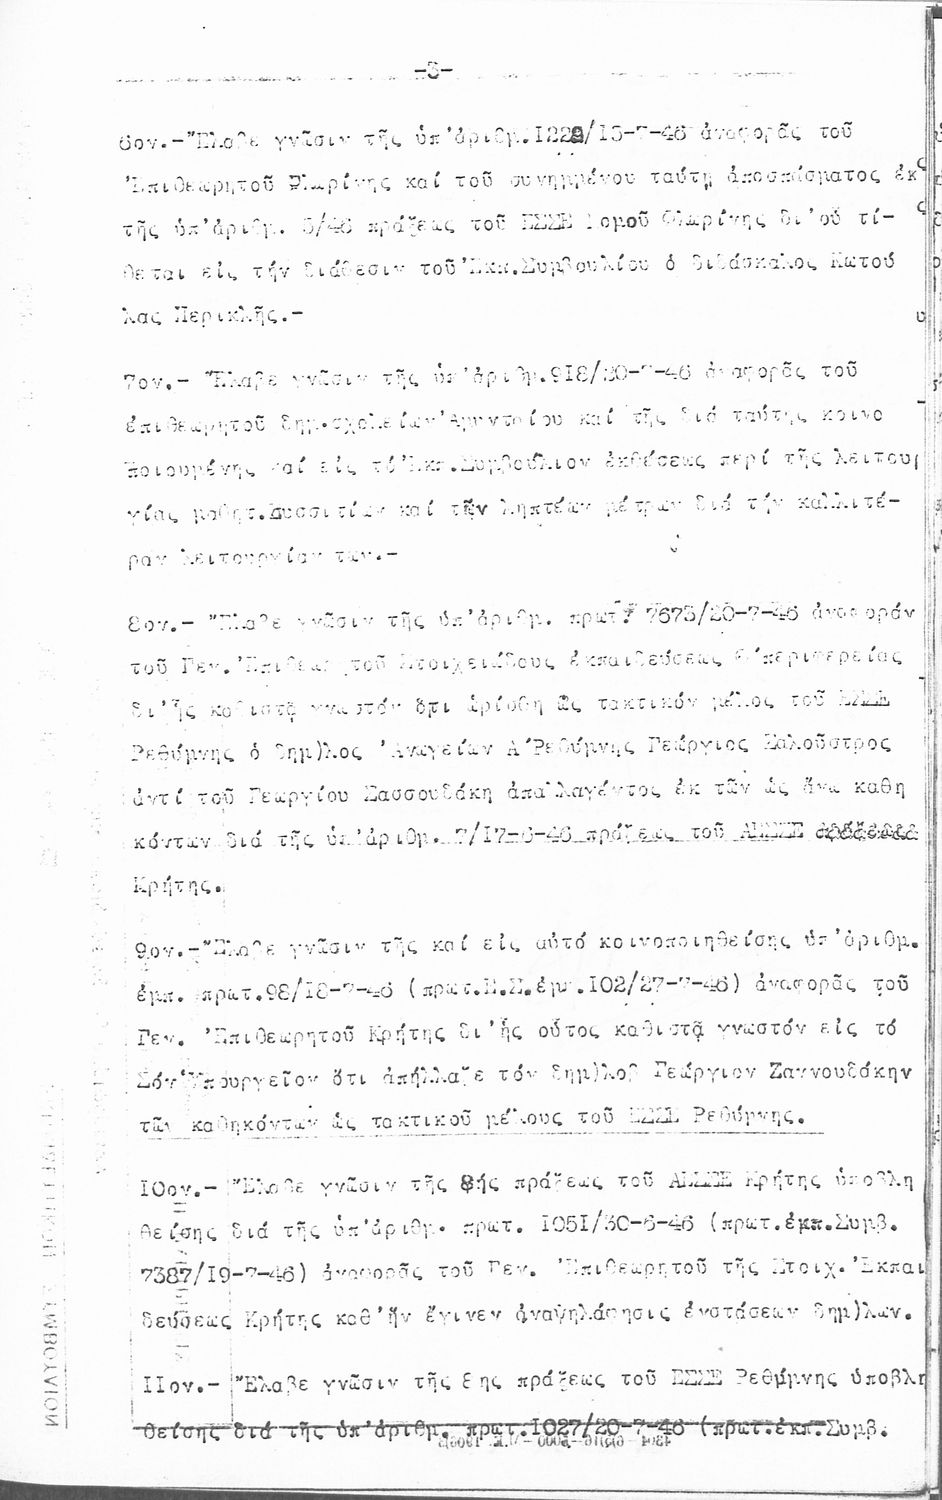 -3-
6ον.-Ἔλαβε γνῶσιν τῆς ὑπ'ἀριθμ.1229/15-7-46 ἀναφορᾶς τοῦ
Ἐπιθεωρητοῦ Φλωρίνης καί τοῦ συνημμένου ταύτῃ ἀποσπάσματος ἐκ
τῆς ὑπ'ἀριθμ. 5/46 πράξεως τοῦ ΕΣΣΕ Νομοῦ Φλωρίνης δι'οὗ τί-
θεται εἰς τήν διάθεσιν τοῦ Ἐκπ.Συμβουλίου ὁ διδάσκαλος Κωτού
λας Περικλῆς.-
7ον.- Ἔλαβε γνῶσιν τῆς ὑπ'ἀριθμ.918/30-7-46 ἀναφορᾶς τοῦ
ἐπιθεωρητοῦ δημ.σχολείων Ἀμυνταίου καί τῆς διά ταύτης κοινο
ποιουμένης καί εἰς τό Ἐκπ.Συμβούλιον ἐκθέσεως περί τῆς λειτουρ
γίας μαθητ.Συσσιτίων καί τῶν ληπτέων μέτρων διά τήν καλλιτέ-
ραν λειτουργίαν των.-
8ον.- Ἔλαβε γνῶσιν τῆς ὑπ'ἀριθμ. πρωτ. 7673/20-7-46 ἀναφοράν
τοῦ Γεν.Ἐπιθεωρητοῦ Στοιχειώδους ἐκπαιδεύσεως Θ'περιφερείας
δι'ἧς καθιστᾷ γνωστόν ὅτι ὡρίσθη ὡς τακτικόν μέλος τοῦ ΕΣΣΕ
Ρεθύμνης ὁ δημ)λος Ἀνωγείων Α'Ρεθύμνης Γεώργιος Σαλούστρος
ἀντί τοῦ Γεωργίου Σασσουδάκη ἀπαλλαγέντος ἐκ τῶν ὡς ἄνω καθη
κόντων διά τῆς ὑπ'ἀριθμ. 7/17-6-46 πράξεως τοῦ ΑΣΣΣΕ
Κρήτης.
9ον.-Ἔλαβε γνῶσιν τῆς καί εἰς αὐτό κοινοποιηθείσης ὑπ'ἀριθμ.
ἐμπ. πρωτ.98/18-7-46 (πρωτ.Ε.Σ.ἐμπ.102/27-7-46) ἀναφορᾶς τοῦ
Γεν. Ἐπιθεωρητοῦ Κρήτης δι'ἧς οὗτος καθιστᾷ γνωστόν εἰς τό
Σόν Ὑπουργεῖον ὅτι ἀπήλλαξε τόν δημ)λον Γεώργιον Ζαννουδάκην
τῶν καθηκόντων ὡς τακτικοῦ μέλους τοῦ ΕΣΣΕ Ρεθύμνης.
10ον.- Ἔλαβε γνῶσιν τῆς 8ής πράξεως τοῦ ΑΣΣΣΕ Κρήτης ὑποβλη
θείσης διά τῆς ὑπ'ἀριθμ. πρωτ. 1051/30-6-46 (πρωτ.ἐμπ.Συμβ.
7387/19-7-46) ἀναφορᾶς τοῦ Γεν. Ἐπιθεωρητοῦ τῆς Στοιχ.Ἐκπαι
δεύσεως Κρήτης καθ'ἥν ἔγινεν ἀναψηλάφησις ἐνστάσεων δημ)λων.
11ον.- Ἔλαβε γνῶσιν τῆς 8ης πράξεως τοῦ ΕΣΣΕ Ρεθύμνης ὑποβλη
θείσης διά τῆς ὑπ'ἀριθμ. πρωτ.1027/20-7-46 (πρωτ.ἐκπ.Συμβ.